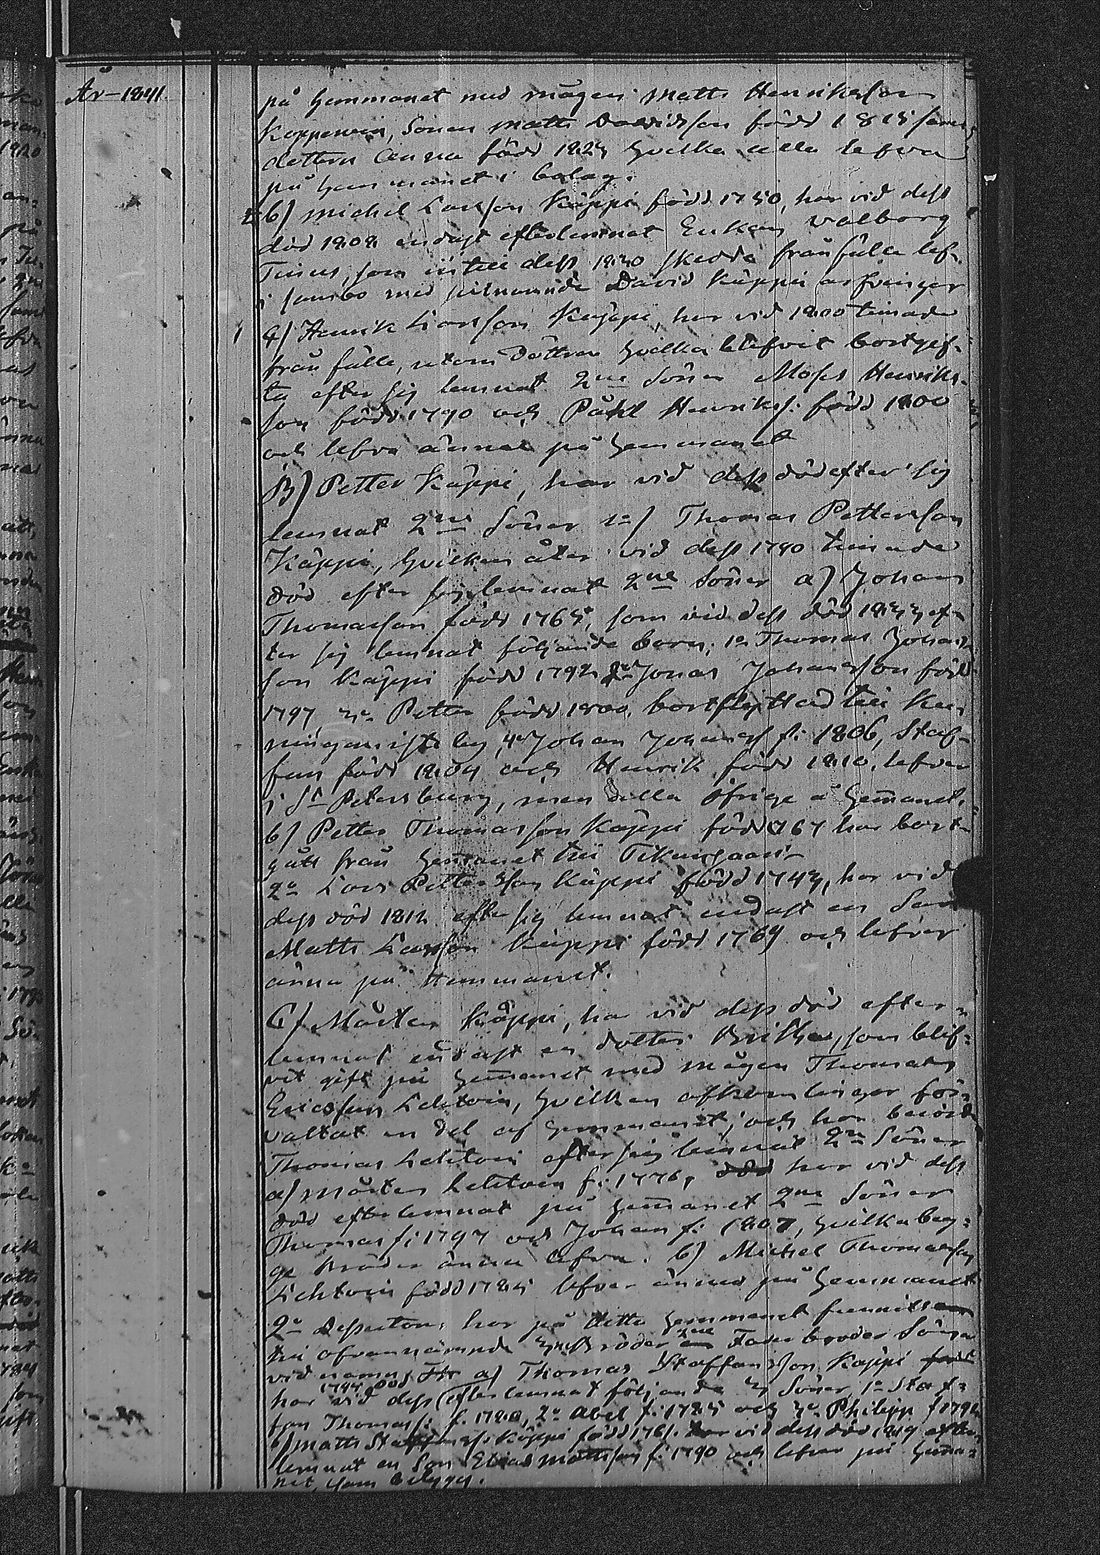 År 1841
på hemmanet med mågen Matts Henriksson
Kopponen, Sonen Matts Davidsson född 1815 samt
dottern Anna född 1823 hvilka alla lefva
på hemmanet i bolag.
b) Michel Larsson Käppi född 1750, har vid dess
död 1808 endast efterlemnat Enkan Valborg
som intill dess 1830 skedda frånfälle lef.
i sambo med David Käppi arfvingar
c) Henrik Larsson Käppi, har vid 1800 timade
frånfälle, utom Döttrar hvilka blifvit bortgif-
ta efter sig lemnat 2ne Söner Moses Henriks-
son född 1790 och Påhl Henriks: född 1800
och lefva ännu på hemmanet
B) Petter Käppi, har vid dess död efter sig
lemnat 2ne Söner 1o) Thomas Pettersson
Käppi, hvilken åter vid dess 1790 timade
död efter sig lemnat 2ne Söner a) Johan
Thomasson född 1765, som vid dess död 1833 ef-
ter sig lemnat följande barn; 1o Thomas Johans-
son Käppi född 1792 2o Jonas Johansson född
1797 3o Petter född 1800, bortflyttad till
4o Johan Johans f: 1806, Staf-
fan född 1804 och Henrik född 1810. lefver
i St Petersburg, men alla öfrige å hemanet.
b) Petter Thomasson Käppi född 1767 har bort-
gått från hemanet till
2o Lars Pettersson Käppi född 1743, har vid
dess död 1812 efter sig lemnat endast en Son
Matts Larsson Käppi född 1769 och lefver
ännu på Hemmanet.
C) Mårten Käppi, har vid dess död efter-
lemnat endast en dotter Britha, som blif-
vit gift på hemanet med mågen Thomas
Ericsson Lehtoin, hvilken afkomlingar för-
valtat en del af hemmanet; och har
Thomas Lehtoin efter sig lemnat 2ne Söner
a) Mårten Lehtoin f: 1776, har vid dess
död efterlemnat på hemanet 2ne Söner
Thomas f: 1797 och Johan f: 1807, hvilka beg-
ge Bröder ännu lefva. b) Michel Thomasson
Lehtoin född 1785 lefver ännu på hemmanet
2o Dessutom, har på detta hemmanet funnits
till ofvannämnde Bröder 2ne Farbroder Söner
vid namn a) Thomas Staffansson Käppi
har vid dess 1794 död efterlemnat följande 3 Söner, 1o Staf-
fan Thomass: f: 1780, 2o Abel f: 1785 och 3o Philipp f 1792
b) Matts Staffanss: Käppi född 1761. har vid dess död 1819 efter
lemnat en Son Elias Mattsson f: 1790 och lefver på hema-
net,